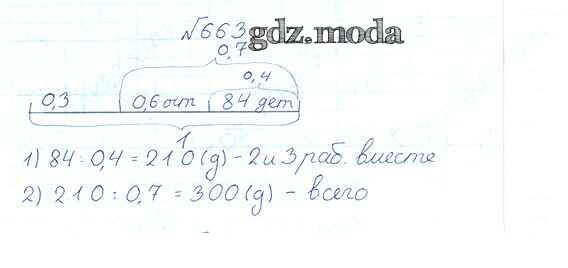 №663
gdz.moda
0,7
0,4
0,3 0,6 ост 84 дет
1
1) 84 : 0,4 = 210 (д) - 2 и 3 раб. вместе
2) 210 : 0,7 = 300 (д) - всего